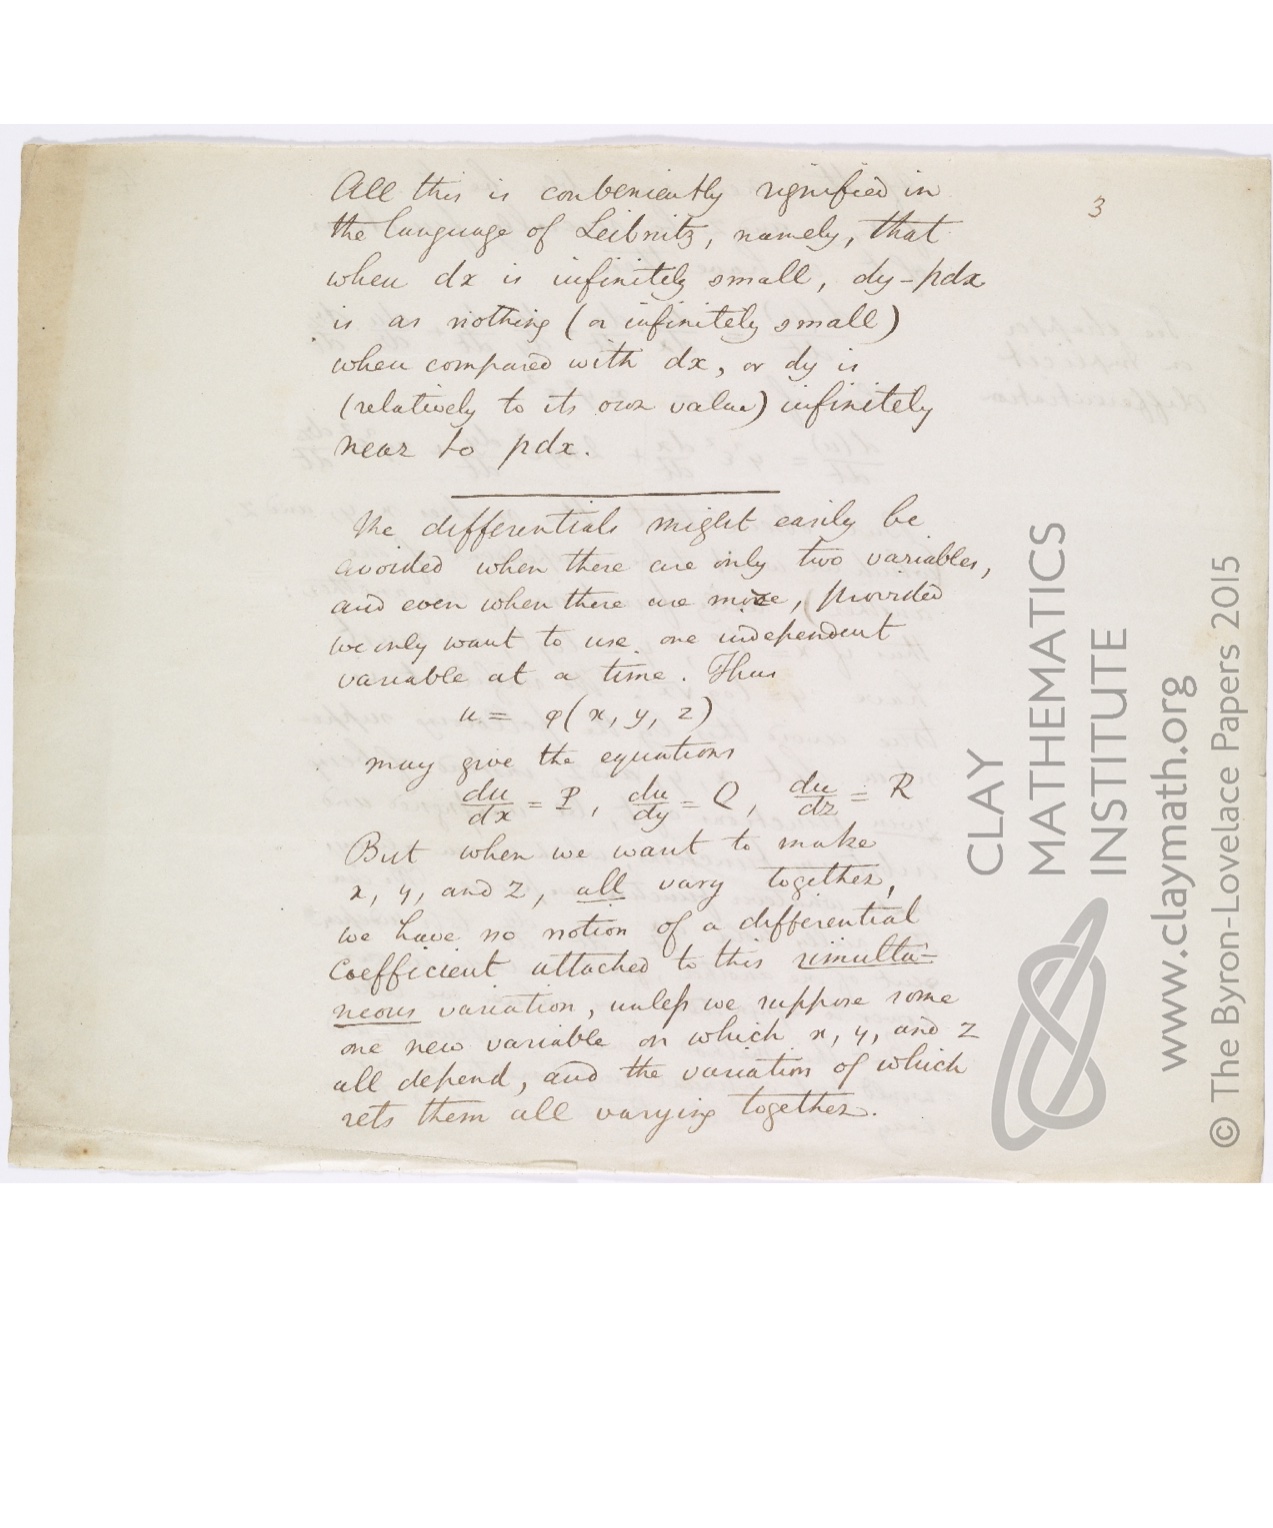 3
All this is conveniently signified in
the language of Leibnitz, namely, that
when dx is infinitely small, dy-pdx
is as nothing (or infinitely small)
when compared with dx, or dy is
(relatively to its own value) infinitely
near to pdx.
The differentials might easily be
avoided when there are only two variables,
and even when there are more, provided
we only want to use one independent
variable at a time. Thus
u = φ(x, y, z)
may give the equations
du/dx = P, du/dy = Q, du/dz = R
But when we want to make
x, y, and z, all vary together,
we have no notion of a differential
coefficient attached to this simulta-
neous variation, unless we suppose some
one new variable on which x, y, and z
all depend, and the variation of which
sets them all varying together.
CLAY
MATHEMATICS
INSTITUTE
www.claymath.org
© The Byron-Lovelace Papers 2015